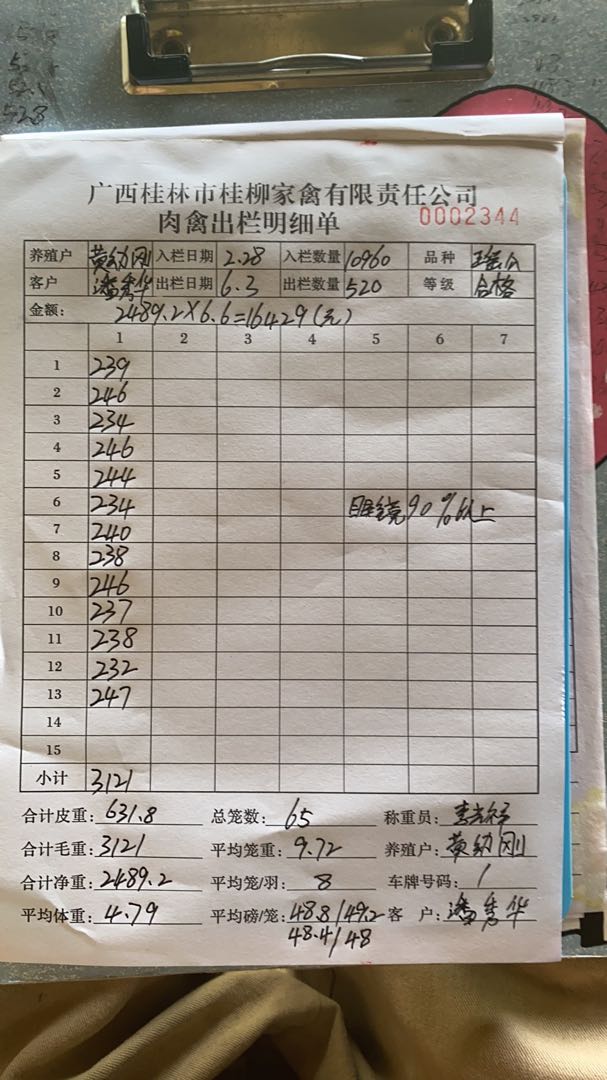 528
广西桂林市桂柳家禽有限责任公司
肉禽出栏明细单 0002344
养殖户 黄幼刚 入栏日期 2.28 入栏数量 10960 品种
客户 潘秀华 出栏日期 6.3 出栏数量 520 等级 合格
金额: 2489.2×6.6=16429(元)
1 2 3 4 5 6 7
1 239
2 246
3 234
4 246
5 244
6 234 眼镜90%以上
7 240
8 238
9 246
10 237
11 238
12 232
13 247
14
15
小计 3121
合计皮重: 631.8 总笼数: 65 称重员:
合计毛重: 3121 平均笼重: 9.72 养殖户: 黄幼刚
合计净重: 2489.2 平均笼/羽: 8 车牌号码: /
平均体重: 4.79 平均磅/笼: 48.8/49.2 客 户: 潘秀华
48.4/48